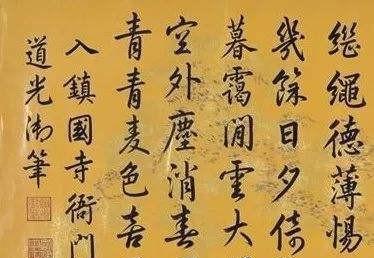 继绳德薄惕
几馀日夕倚
暮霭閒云大
空外尘消春
青青麦色喜
入鎮國寺衙門
道光御筆